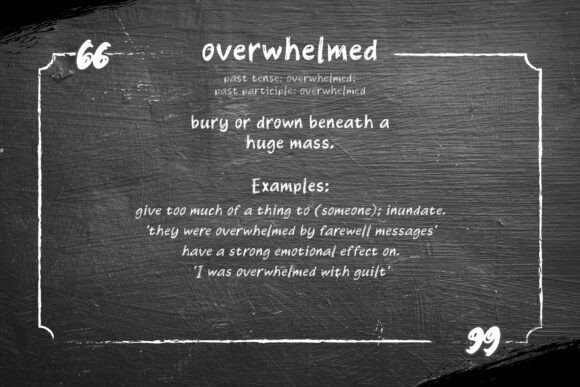 overwhelmed
past tense: overwhelmed;
past participle: overwhelmed
bury or drown beneath a
huge mass.
Examples:
give too much of a thing to (someone); inundate.
'they were overwhelmed by farewell messages'
have a strong emotional effect on.
'I was overwhelmed with guilt'